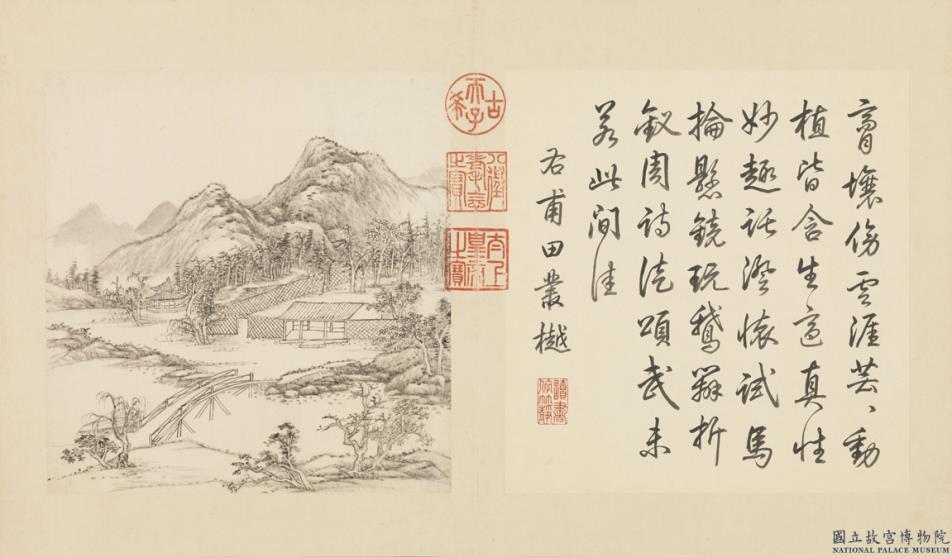 膏壤傍雲涯芸〻動
植皆含生適真性
妙趣託澄懷試馬
掄懸鏡玩鵝辨折
釵周詩徒頌武未
若此間佳
右甫田叢樾
讀書
依竹靜
古希天子
八徵耄念之寶
太上皇帝之寶
國立故宮博物院
NATIONAL PALACE MUSEUM